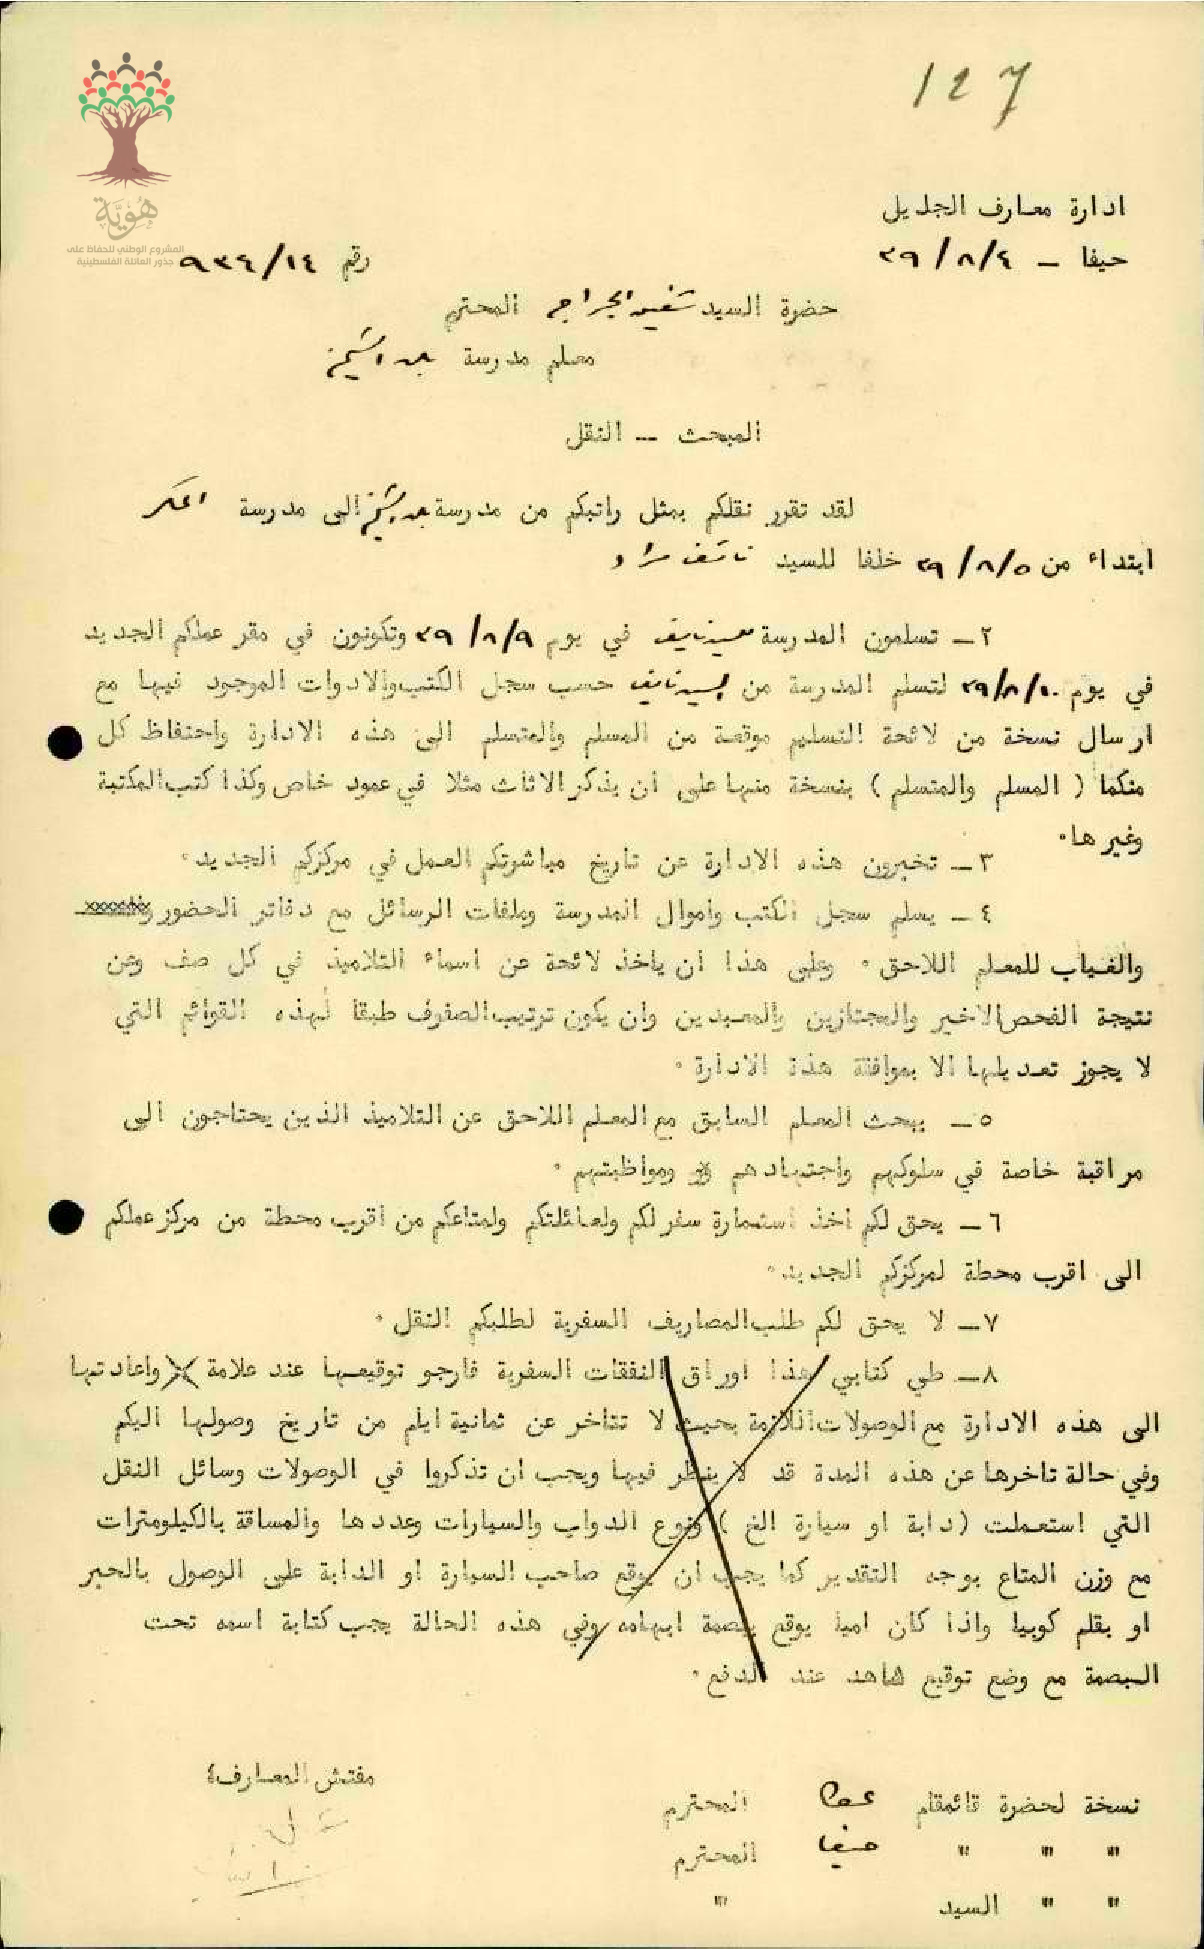 127
هوية
المشروع الوطني للحفاظ على
جذور العائلة الفلسطينية
ادارة معارف الجليل
حيفا – ٣٩/٨/٤ رقم ٩٣٤/١٤
حضرة السيد شفيق الجراح المحترم
معلم مدرسة بلد الشيخ
المبحث – النقل
لقد تقرر نقلكم بمثل راتبكم من مدرسة بلد الشيخ الى مدرسة المكر
ابتداء من ٣٩/٨/٥ خلفا للسيد نايف
٢– تسلمون المدرسة نايف في يوم ٣٩/٨/٩ وتكونون في مقر عملكم الجديد
في يوم ٣٩/٨/١٠ لتسلم المدرسة من السيد نايف حسب سجل الكتب والادوات الموجود فيها مع
ارسال نسخة من لائحة التسليم موقعة من المسلم والمتسلم الى هذه الادارة واحتفاظ كل
منكما ( المسلم والمتسلم ) بنسخة منها على ان يذكر الاثاث مثلا في عمود خاص وكذا كتب المكتبة
وغيرها٠
٣– تخبرون هذه الادارة عن تاريخ مباشرتكم العمل في مركزكم الجديد٠
٤– يسلم سجل الكتب واموال المدرسة وملفات الرسائل مع دفاتر الحضور
والغياب للمعلم اللاحق ٠ وعلى هذا ان ياخذ لائحة عن اسماء التلاميذ في كل صف وعن
نتيجة الفحص الاخير والمجتازين والمعيدين وان يكون ترتيب الصفوف طبقا لهذه القوائم التي
لا يجوز تعديلها الا بموافقة هذه الادارة ٠
٥– يبحث المعلم السابق مع المعلم اللاحق عن التلاميذ الذين يحتاجون الى
مراقبة خاصة في سلوكهم واجتهادهم ومواظبتهم ٠
٦– يحق لكم اخذ استمارة سفر لكم ولعائلتكم ولمتاعكم من اقرب محطة من مركز عملكم
الى اقرب محطة لمركزكم الجديد٠
٧– لا يحق لكم طلب المصاريف السفرية لطلبكم النقل ٠
٨– طي كتابي هذا اوراق النفقات السفرية فارجو توقيعها عند علامة X واعادتها
الى هذه الادارة مع الوصولات اللازمة بحيث لا تتاخر عن ثمانية ايام من تاريخ وصولها اليكم
وفي حالة تاخرها عن هذه المدة قد لا ينظر فيها ويجب ان تذكروا في الوصولات وسائل النقل
التي استعملت (دابة او سيارة الخ ) ونوع الدواب والسيارات وعددها والمسافة بالكيلومترات
مع وزن المتاع بوجه التقدير كما يجب ان يوقع صاحب السيارة او الدابة على الوصول بالحبر
او بقلم كوبيا واذا كان اميا يوقع ببصمة ابهامه وفي هذه الحالة يجب كتابة اسمه تحت
البصمة مع وضع توقيع شاهد عند الدفع ٠
مفتش المعارف
نسخة لحضرة قائمقام عكا المحترم
" " " حيفا المحترم
" " السيد "